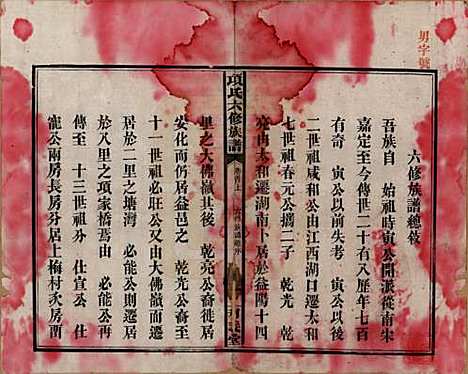 男字號
六修族譜總敘
吾族自 始祖時寅公開派從南宋
嘉定至今傳世二十有八歷年七百
有奇 寅公以前失考 寅公以後
二世祖咸和公由江西湖口遷太和
七世祖春元公攜二子 乾光 乾
亮由太和遷湖南卜居於益陽十四
項氏六修族譜
里之大佛嶺其後 乾亮公裔徙居
安化而仍居益邑之 乾光公裔傳
十一世祖必旺公又由大佛嶺遷
居於一里之塘灣 必能公則遷居
於八里之項家橋焉由 必能公再
傳 十三世祖 仕宣公 仕
寵公兩房長房分居上梅村次房所